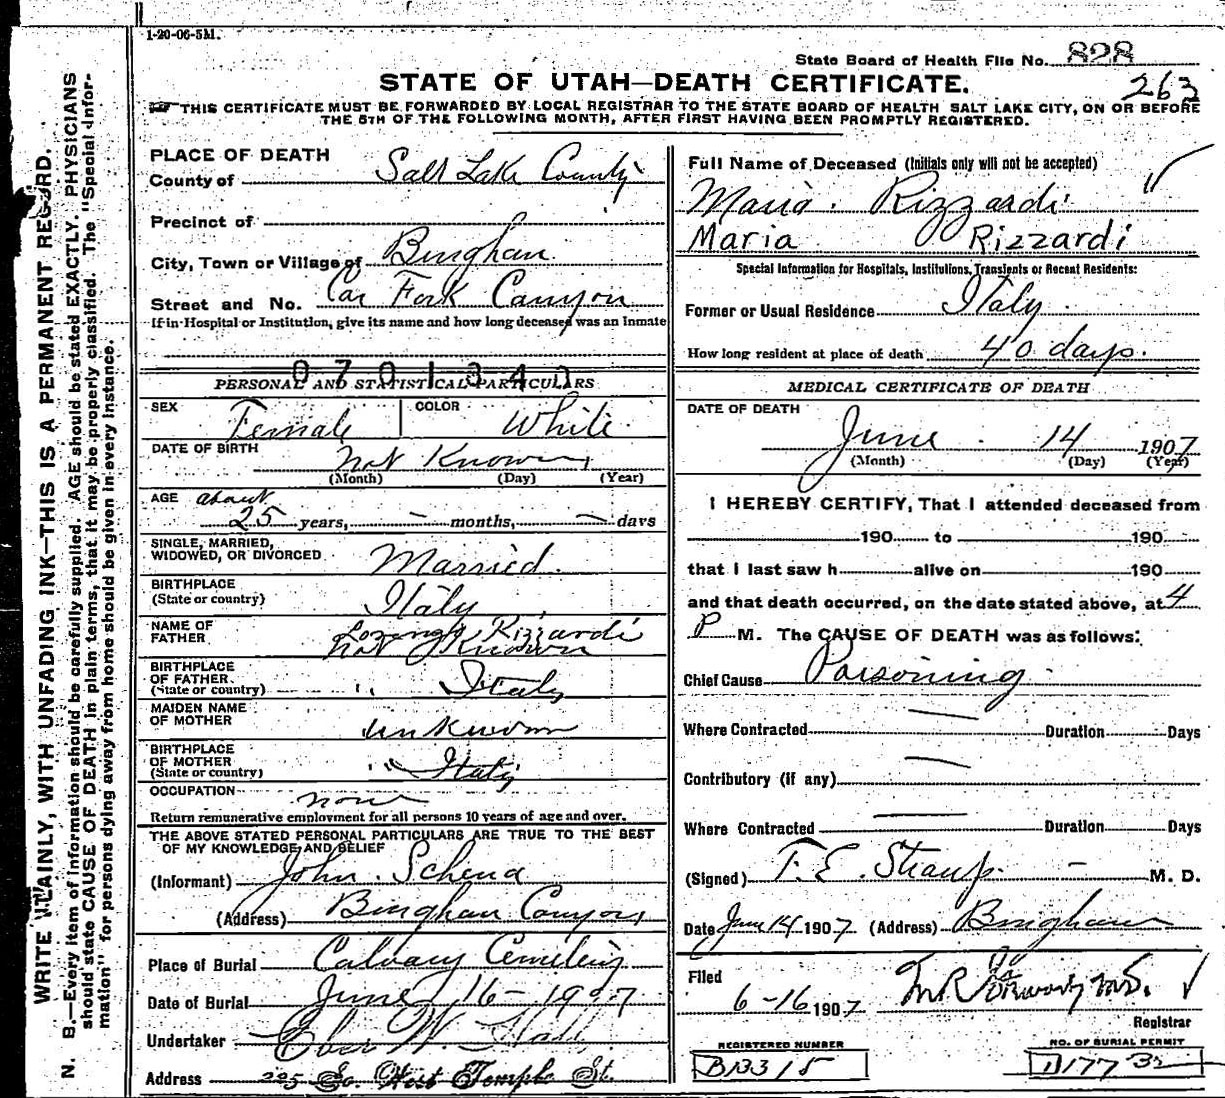 1-20-06-5M.
State Board of Health File No. 828
263
STATE OF UTAH—DEATH CERTIFICATE.
THIS CERTIFICATE MUST BE FORWARDED BY LOCAL REGISTRAR TO THE STATE BOARD OF HEALTH SALT LAKE CITY, ON OR BEFORE
THE 5TH OF THE FOLLOWING MONTH, AFTER FIRST HAVING BEEN PROMPTLY REGISTERED.
WRITE PLAINLY, WITH UNFADING INK—THIS IS A PERMANENT RECORD.
N. B.—Every item of information should be carefully supplied. AGE should be stated EXACTLY. PHYSICIANS
should state CAUSE OF DEATH in plain terms, that it may be properly classified. The "Special Infor-
mation" for persons dying away from home should be given in every instance.
PLACE OF DEATH
County of Salt Lake County
Precinct of
City, Town or Village of Bingham
Street and No. Car Fork Canyon
If in Hospital or Institution, give its name and how long deceased was an Inmate
0701342
PERSONAL AND STATISTICAL PARTICULARS
SEX Female COLOR White
DATE OF BIRTH not Known
(Month) (Day) (Year)
AGE about
25 years, — months, — days
SINGLE, MARRIED,
WIDOWED, OR DIVORCED Married
BIRTHPLACE
(State or country) Italy
NAME OF
FATHER Lorenzo Rizzardi
not Known
BIRTHPLACE
OF FATHER
(State or country) " Italy
MAIDEN NAME
OF MOTHER unKnown
BIRTHPLACE
OF MOTHER
(State or country) " Italy
OCCUPATION none
Return remunerative employment for all persons 10 years of age and over.
THE ABOVE STATED PERSONAL PARTICULARS ARE TRUE TO THE BEST
OF MY KNOWLEDGE AND BELIEF
(Informant) John Schena
(Address) Bingham Canyon
Place of Burial Calvary Cemetery
Date of Burial June 16-1907
Undertaker Eber W. Hall
Address 225 So. West Temple St.
Full Name of Deceased (Initials only will not be accepted)
Maria Rizzardi
Maria Rizzardi
Special Information for Hospitals, Institutions, Transients or Recent Residents:
Former or Usual Residence Italy
How long resident at place of death 40 days.
MEDICAL CERTIFICATE OF DEATH
DATE OF DEATH
June 14 1907
(Month) (Day) (Year)
I HEREBY CERTIFY, That I attended deceased from
190 to 190
that I last saw h alive on 190
and that death occurred, on the date stated above, at 4
P M. The CAUSE OF DEATH was as follows:
Chief Cause Poisoning
Where Contracted — Duration Days
Contributory (if any) —
Where Contracted — Duration Days
(Signed) F. E. Straup — M. D.
Date June 14 1907 (Address) Bingham
Filed
6-16 1907
Registrar
REGISTERED NUMBER
B13315
NO. OF BURIAL PERMIT